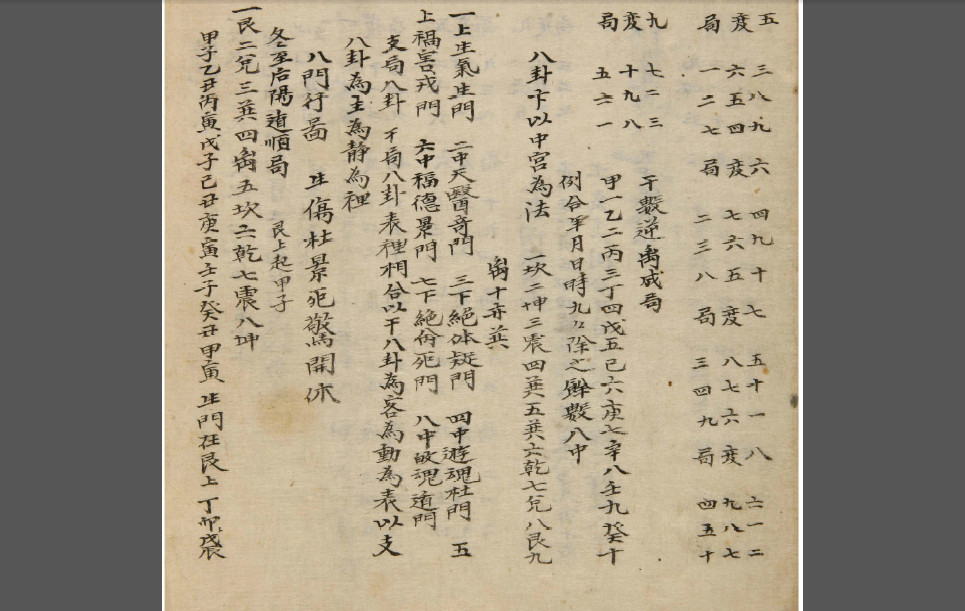 五 三八九 六 四九十 七 五十一 八 六一二
変 六五四 変 七六五 変 八七六 変 九八七
局 一二七 局 二三八 局 三四九 局 四五十
九 七二三
変 十九八
局 五六一
干數逆 成局
甲一乙二丙三丁四戊五己六庚七辛八壬九癸十
例合年月日時九々除之 數八中
八卦卞以中宮為法 一坎二坤三震四巽五巽六乾七兌八艮九
离十亦巽
一上生氣生門 二中天醫奇門 三下絶体疑門 四中遊魂杜門 五
上禍害戎門 六中福德景門 七下絶命死門 八中 魂 門
支局八卦 干局八卦表裡相合以干八卦為客為動為表以支
八卦為主為静為裡
八門行局 生傷杜景死驚開休
冬至后陽遁順局 艮上起甲子
一艮二兌三巽四离五坎六乾七震八坤
甲子乙丑丙寅戊子己丑庚寅壬子癸丑甲寅 生門在艮上 丁卯戊辰